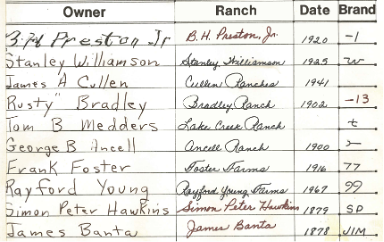 Owner Ranch Date Brand
B.H. Preston Jr B.H. Preston, Jr. 1920 -1
Stanley Williamson Stanley Williamson 1925 W
James A Cullen Cullen Ranches 1941
"Rusty" Bradley Bradley Ranch 1902 -13
Tom B Medders Lake Creek Ranch t
George B Ancell Ancell Ranch 1900
Frank Foster Foster Farms 1916 77
Rayford Young Rayford Young Farms 1967
Simon Peter Hawkins Simon Peter Hawkins 1879 SP
James Banta James Banta 1878 JIM